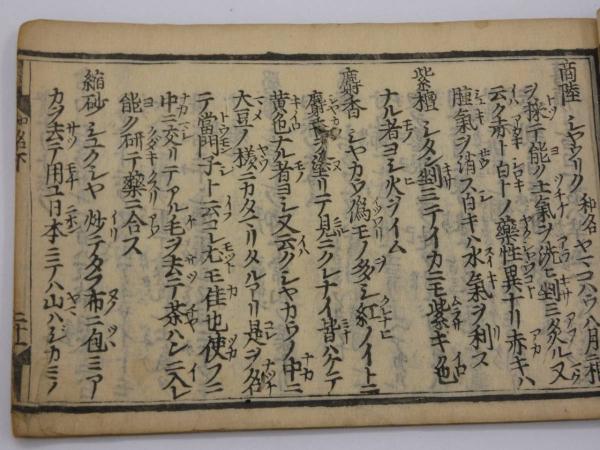 商陸 シヤウリク 和名ヤマコハウ八月ニ根
ヲ採テ能ク土氣ヲ洗ヒ剉ミ炙ル又
云ク赤ト白トノ藥性異ナリ赤キハ
腫氣ヲ消ス白キハ水氣ヲ利ス
紫檀 シタン剉ミテイカニモ紫キ色
ナル者ヨシ火ヲイム
麝香 シヤカウ偽モノ多シ紅ノイトニ
麝キヲ塗リテ見ニクレナイ皆ハゲテ
黄色ナル者ヨシ又云クシヤカウノ中ニ
大豆ノ様ニカタマリタルアリ是ヲ名
テ當門子ト云コレ尤モ佳也使フニ
中ニ交リテアル毛ヲ去テ茶ハレニ入レ
能ク研テ藥ニ合ス
縮砂 シユクシヤ 炒テタラ布ニ包ミア
カヲ去テ用ユ日本ニテハ山ハジカミノ
和名下
二十一